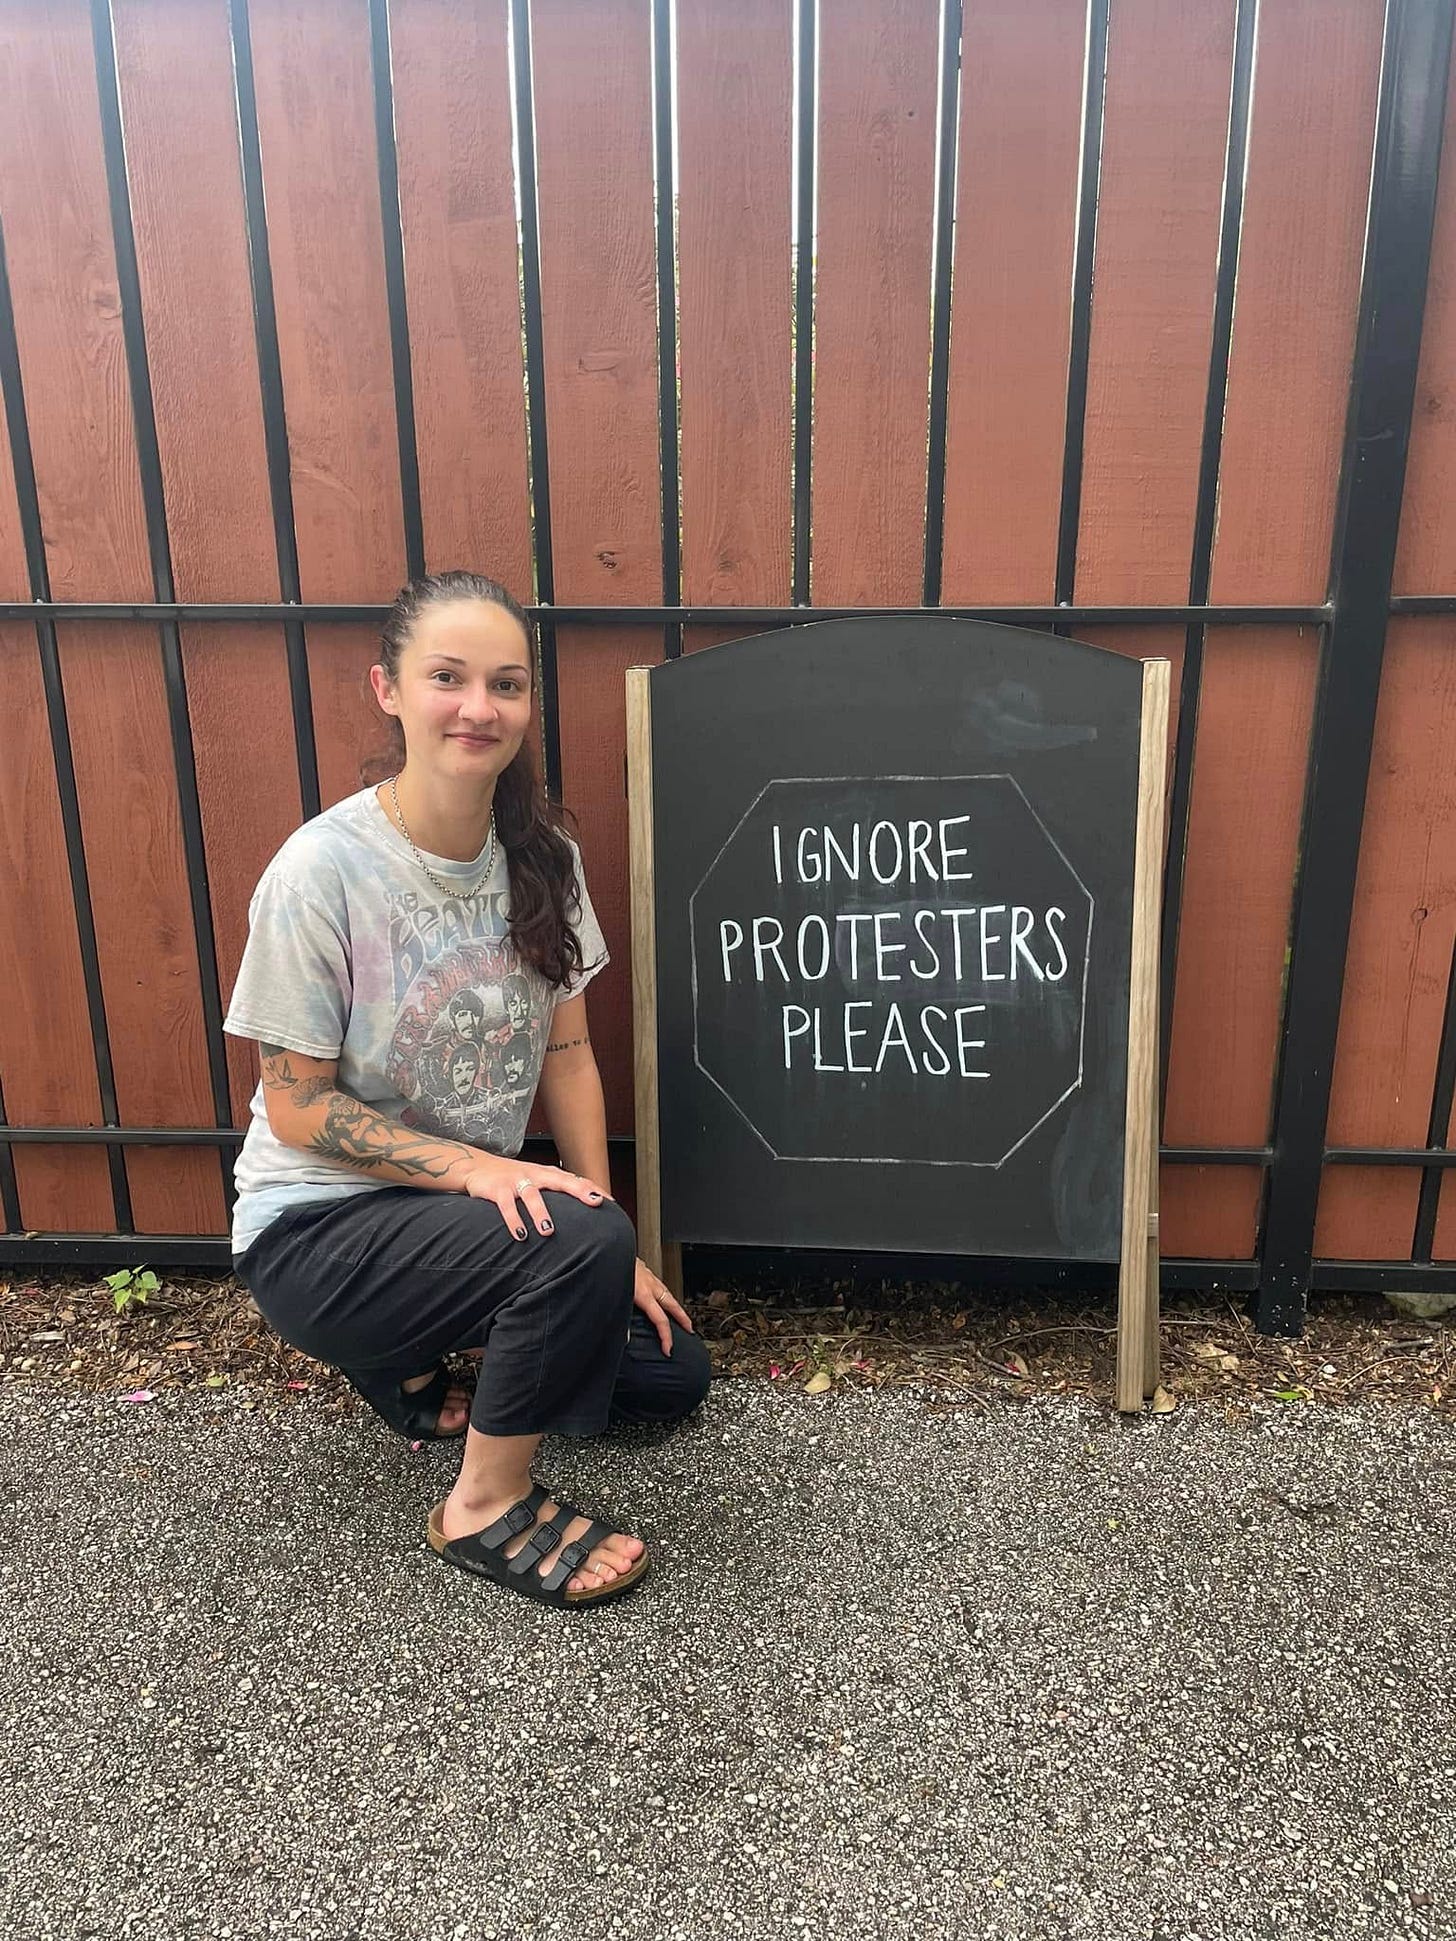 THE
BEATL
IGNORE
PROTESTERS
PLEASE